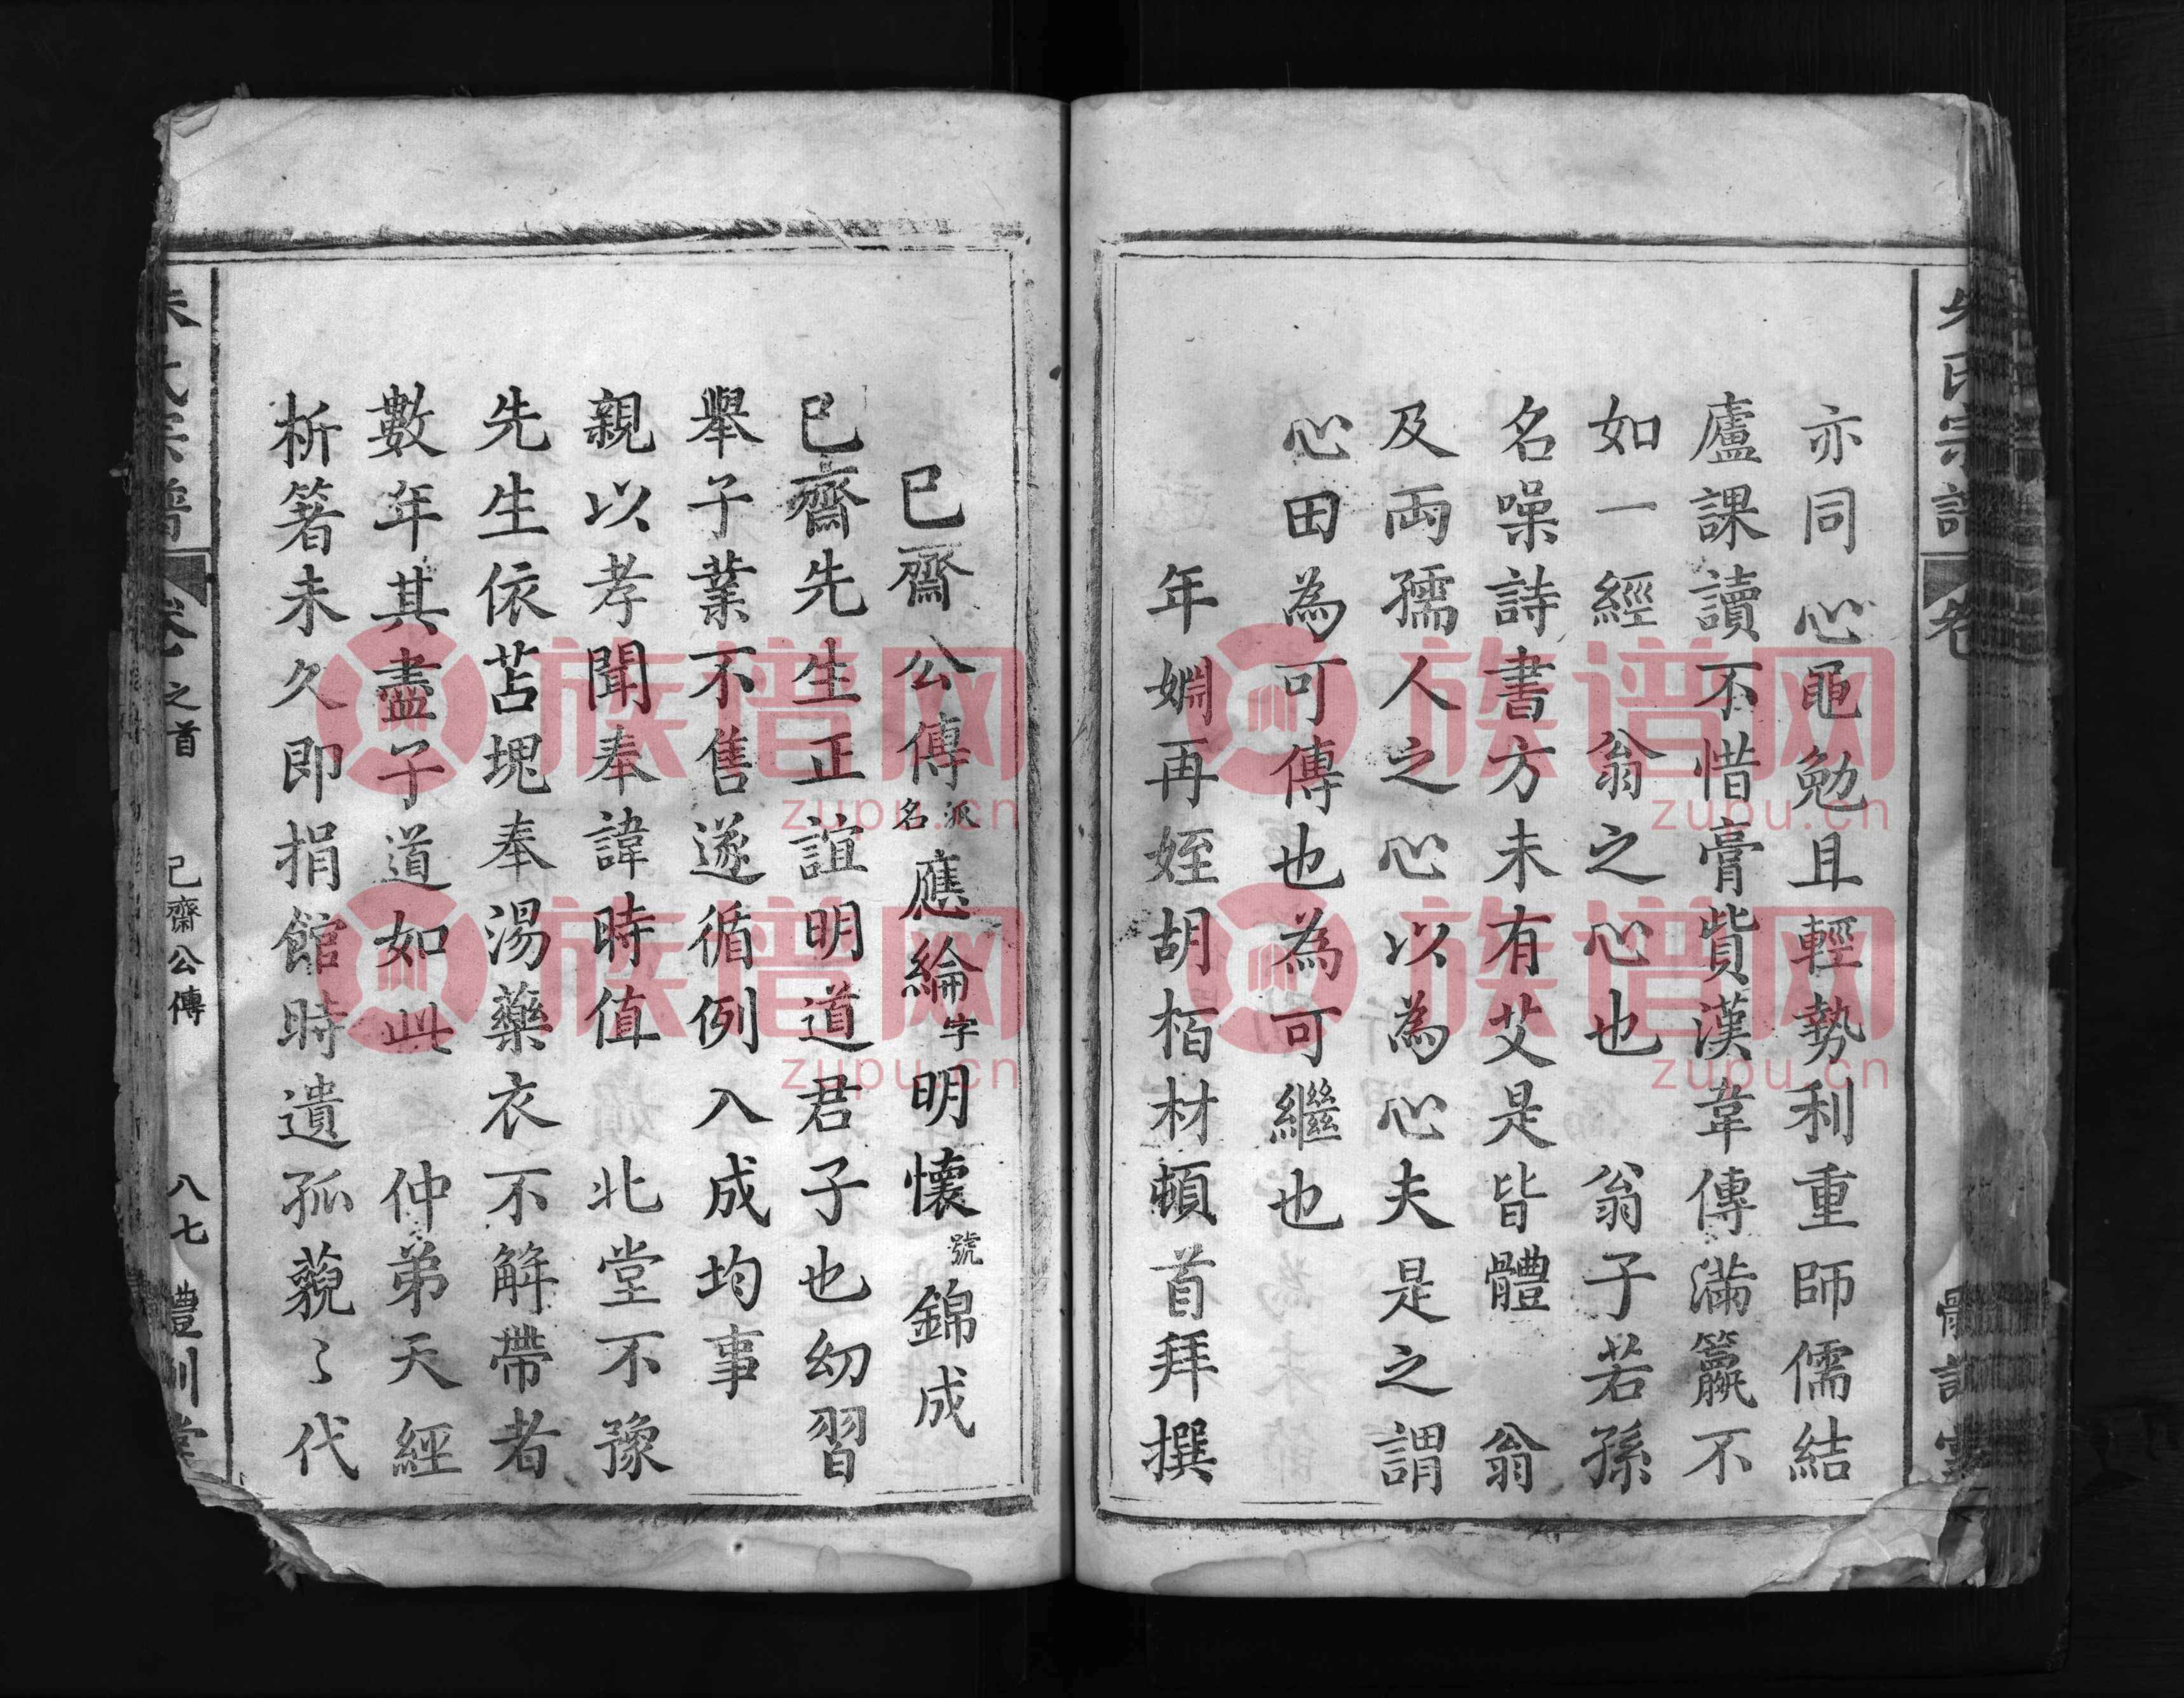 朱氏宗譜 卷
亦同心黽勉且輕勢利重師儒結
廬課讀不惜膏貲漢韋傳滿籯不
如一經 翁之心也 翁子若孫
名噪詩書方未有艾是皆體 翁
及兩孺人之心以為心夫是之謂
心田為可傳也為可繼也
年姻再姪胡栢材頓首拜撰
已齋公傳派名應綸字明懷號錦成
已齋先生正誼明道君子也幼習
舉子業不售遂循例入成均事
親以孝聞奉諱時值 北堂不豫
先生依苫塊奉湯藥衣不解帶者
數年其盡子道如此 仲弟天經
析箸未久即捐館時遺孤藐〻代
朱氏宗譜 卷之首 已齋公傳 八七 禮訓堂
族谱网
zupu.cn
族谱网
zupu.cn
族谱网
zupu.cn
族谱网
zupu.cn